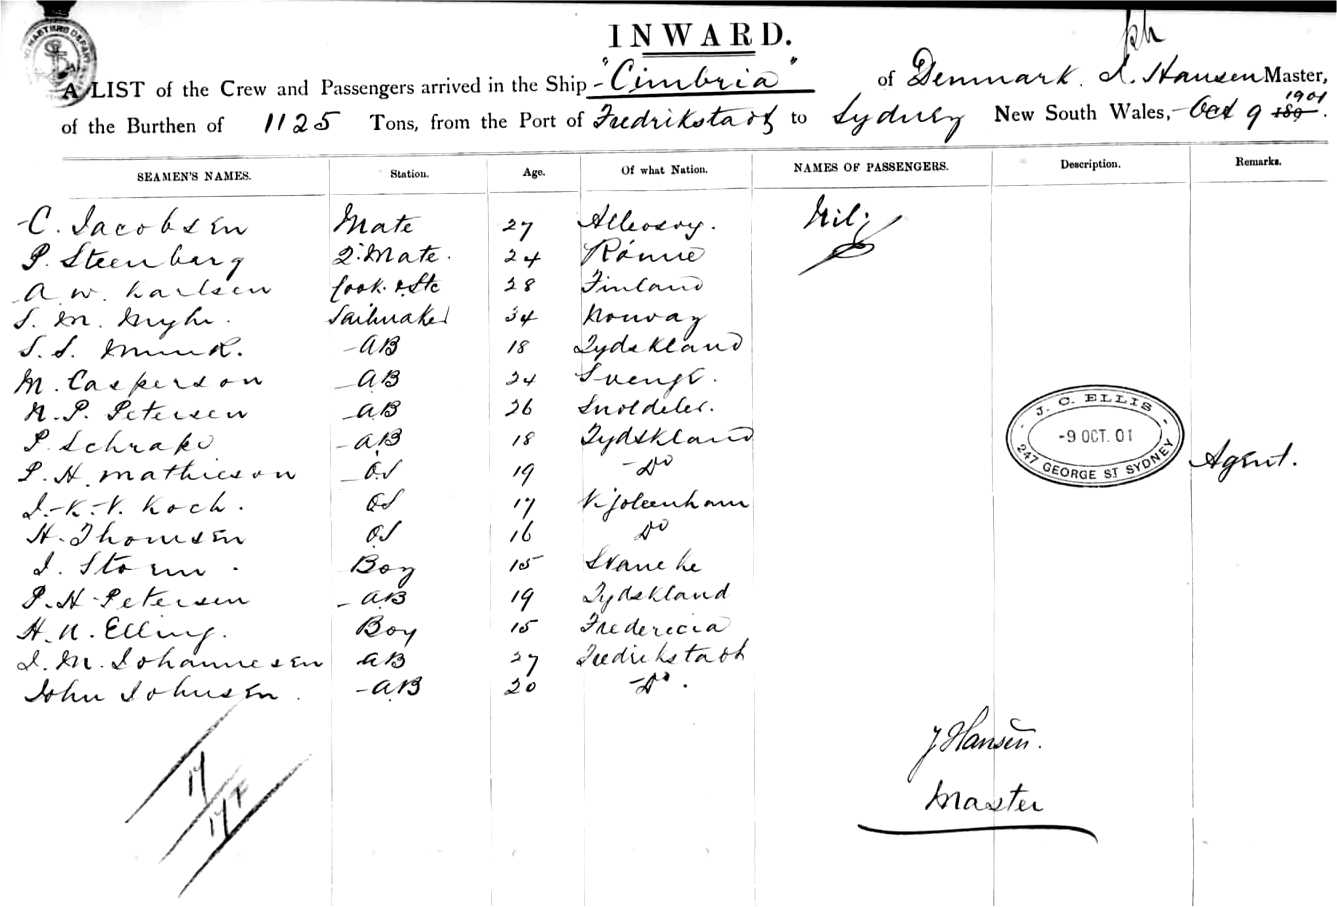 INWARD.
A LIST of the Crew and Passengers arrived in the Ship "Cimbria" of Denmark. I. Hansen Master,
of the Burthen of 1125 Tons, from the Port of Fredrikstadt to Sydney New South Wales, Oct 9 1901.
SEAMEN'S NAMES. Station. Age. Of what Nation. NAMES OF PASSENGERS. Description. Remarks.
C. Jacobsen Mate 27 Nil;
P. Steenbarg 2. Mate. 24 Rönne
A. W. Karlsen Cook & Stc 28 Finland
S. M. Sailmaker 34 Norway
S. S. Munk. AB 18 Tydskland
M. Casperson AB 24
N. P. Petersen AB 26
P. Schrako AB 18 Tydskland
P. H. Mathieson OS 19 Do
I. K. V. Koch. OS 17
H. Thomsen OS 16 Do
I. Storm. Boy 15 Svaneke
P. H. Petersen AB 19 Tydskland
H. N. Elling. Boy 15 Fredericia
I. M. Johannesen AB 27 Fredrikstadt
John Johnsen. AB 20 Do.
J. C. ELLIS
-9 OCT. 01
247 GEORGE ST SYDNEY
Agent.
J Hansen.
Master
17